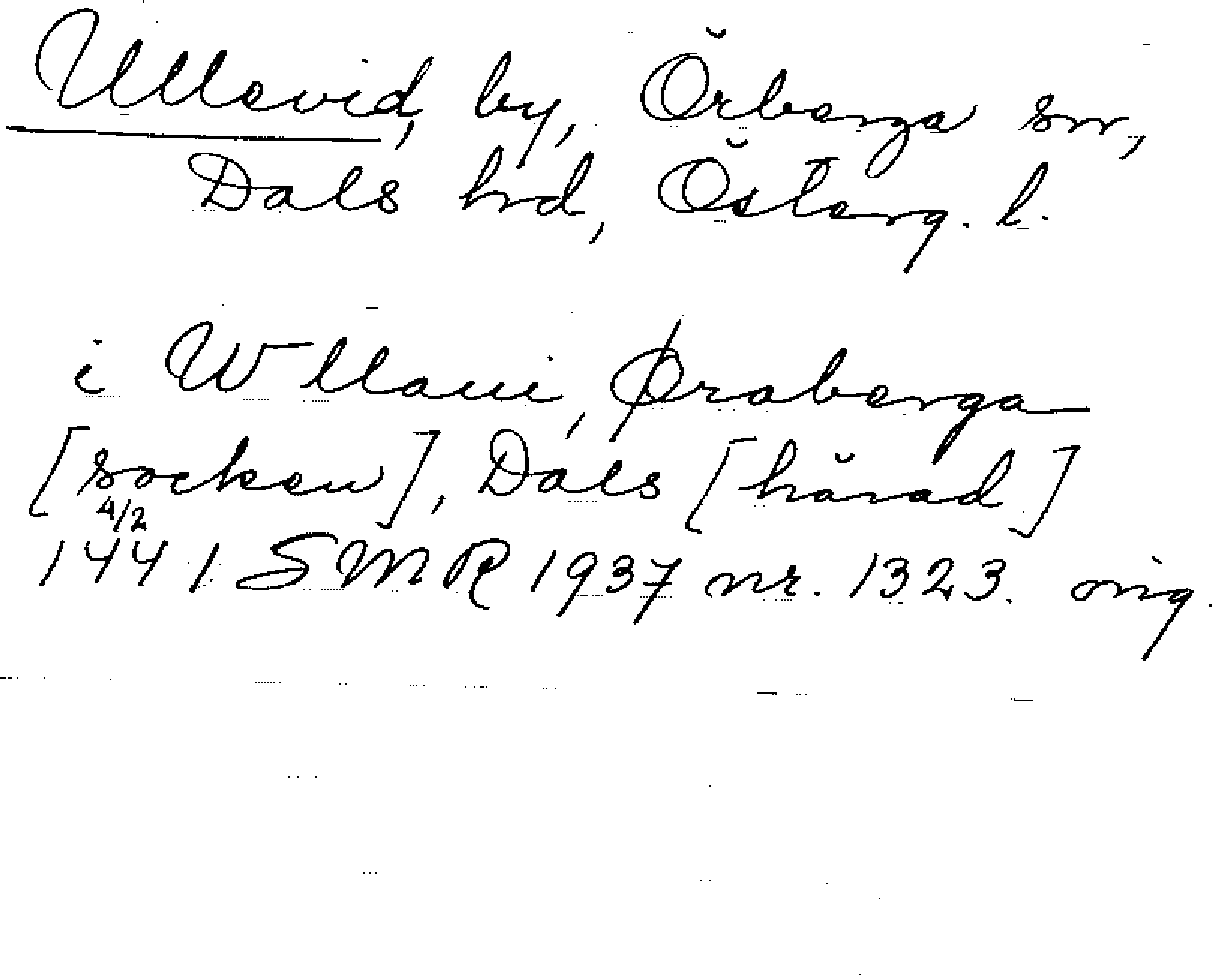 Ullevid, by, Örberga sn,
Dals hd, Österg. l.
i Wllaui, Øraberga
[socken], Dals [härad]
4/2
1441 SMR 1937 nr. 1323. orig.